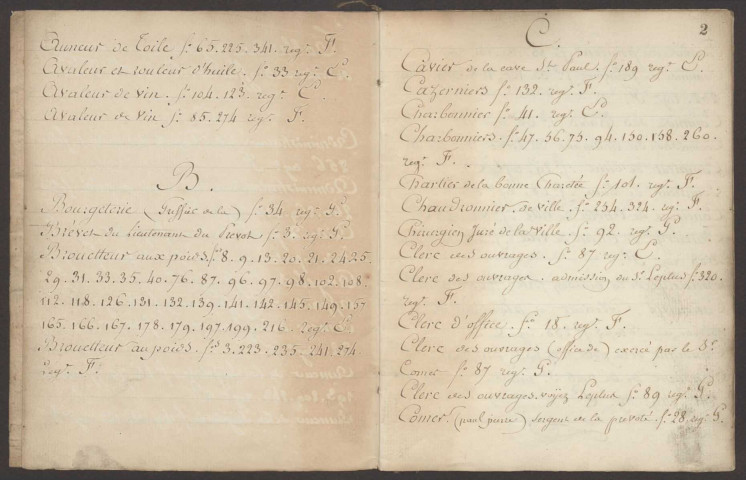 Auneur de Toile f.º 65. 225. 341. reg.e F.
Avaleur et rouleur d'huile. f.º 33 reg.e E.
Avaleur de vin. f.º 104. 123. reg.e E.
Avaleur de vin f.º 85. 274 reg.e F.
B.
Bourgeterie f.º 34 reg.e G.
Brevet du Lieutenant du Prevot f.º 3. reg.e G.
Brouetteur aux poids f.º 8. 9. 13. 20. 21. 24. 25.
29. 31. 33. 35. 40. 76. 87. 96. 97. 98. 102. 108.
112. 118. 126. 131. 132. 139. 141. 142. 145. 149. 157
165. 166. 167. 178. 179. 197. 199. 216. reg.e E.
Brouetteur au poids. f.º 3. 223. 235. 241. 274
reg.e F.
2
C.
Cavier de la cave St Paul. f.º 189 reg.e E.
Cazerniers f.º 132. reg.e F.
Charbonnier f.º 41. reg.e E.
Charbonniers. f.º 47. 56. 75. 94. 130. 158. 260.
reg.e F.
Chartier de la bonne Charetée f.º 101. reg.e F.
Chaudronnier de ville. f.º 254. 324. reg.e F.
Chirurgien Juré de la ville. f.º 92. reg.e G.
Clerc des ouvrages. f.º 87 reg.e E.
Clerc des ouvrages. admission du Sr Leplus f.º 320.
reg.e F.
Clerc d'office. f.º 18. reg.e F.
Clerc des ouvrages (office de) exercé par le Sr
Comer f.º 87 reg.e G.
Clerc des ouvrages. voyez Leplus f.º 89 reg.e G.
Comer. (paul pierre) sergent de la prevoté. f.º 28. reg.e G.